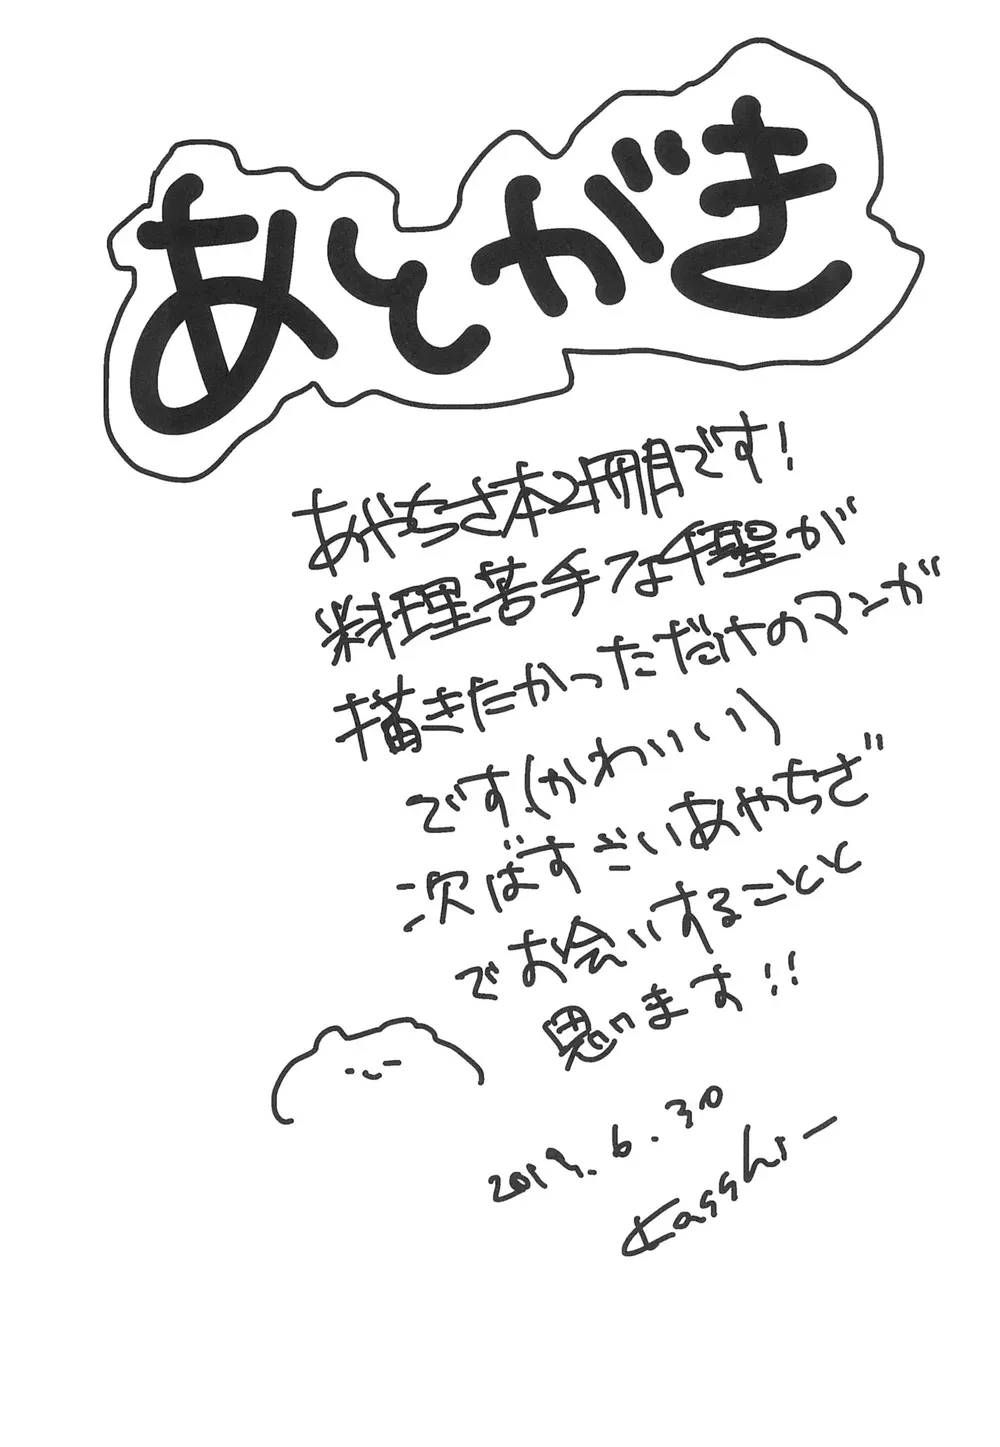 あとがき
あやちさ本2冊目です!
料理苦手な千聖が
描きたかっただけのマンガ
です(かわいい)
次ばすごいあやちさ
でお会いすることと
思います!!
6.30
Kasshi–